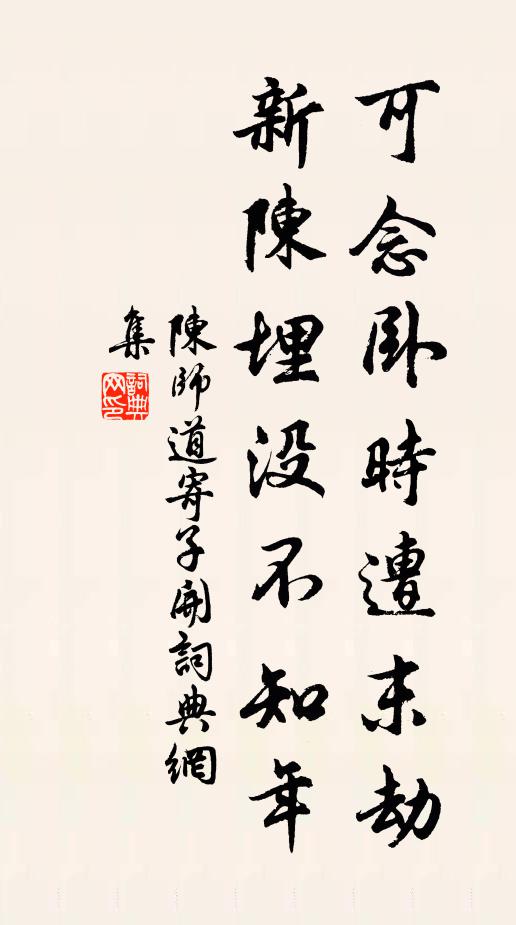 可念卧時遭末劫
新陳埋没不知年
陳師道寄子開詞典網
集
詞典网印